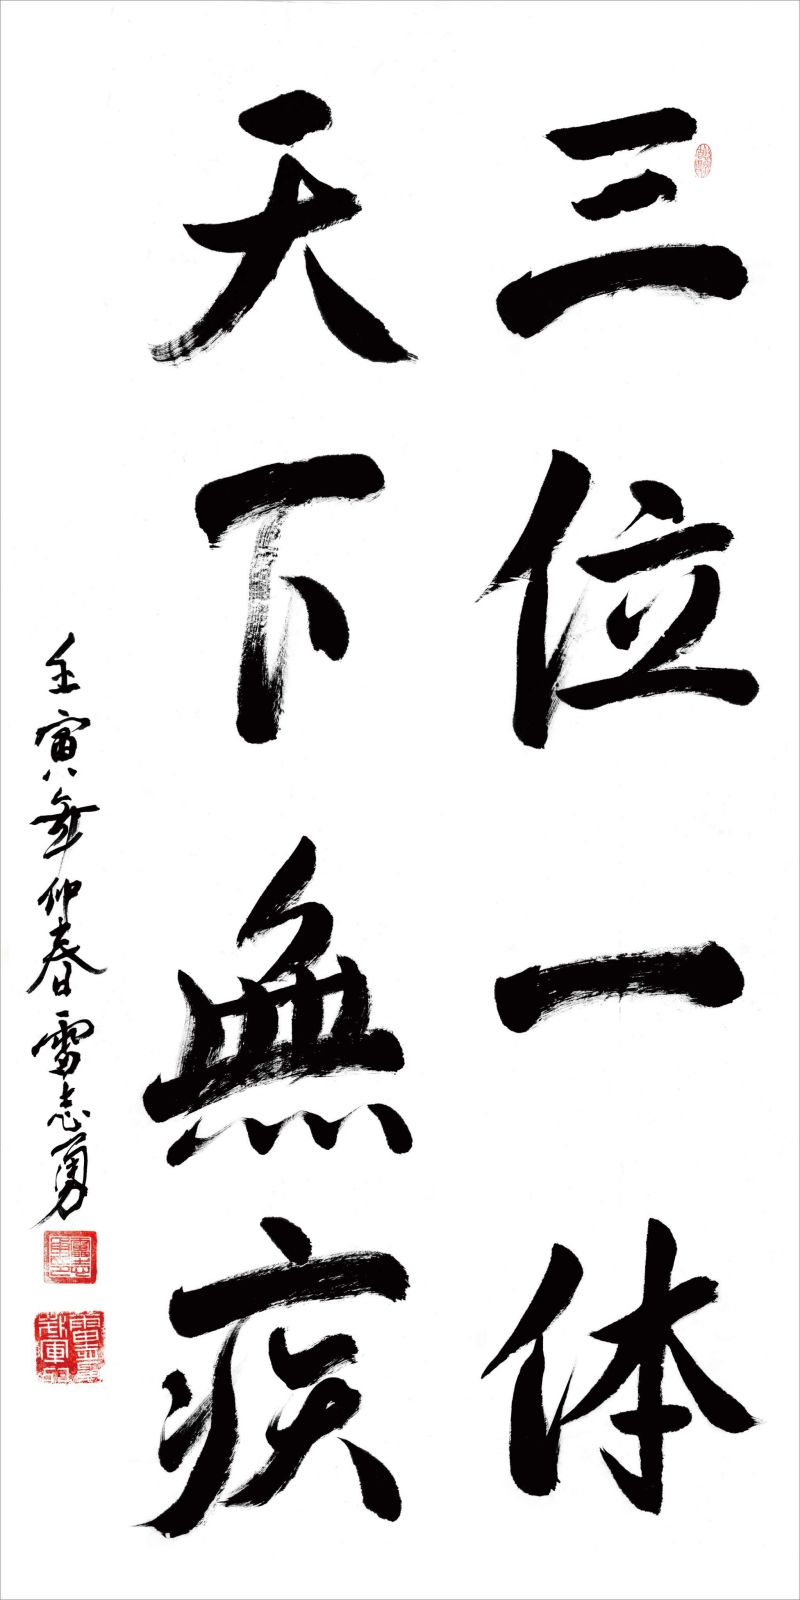 三位一体
天下無疾
壬寅年仲春雷志勇